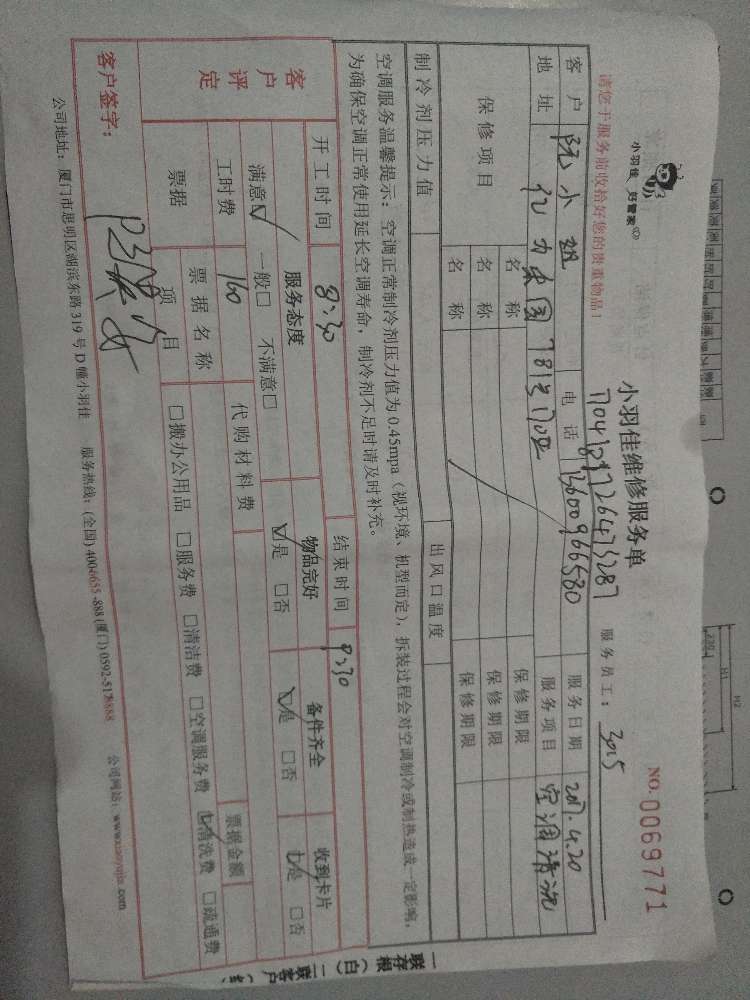 小羽佳 好管家
小羽佳维修服务单
NO. 0069771
7704189726473287
请您于服务前收拾好您的贵重物品！
服务员工： 3015
客户 阮小姐 电话 13600966580 服务日期 2017.4.20
地址 服务项目 空调清洗
保修项目 名称 保修期限
名称 保修期限
名称 保修期限
制冷剂压力值 出风口温度
空调服务温馨提示：空调正常制冷剂压力值为0.45mpa（视环境、机型而定），拆装过程会对空调制冷或制热造成一定影响，
为确保空调正常使用延长空调寿命，制冷剂不足时请及时补充。
开工时间 8:30 结束时间 9:30
客户评定
服务态度 物品完好 备件齐全 收到卡片
满意☑ 一般□ 不满意□ ☑是 □否 ☑是 □否 ☑是 □否
工时费 160 代购材料费
票据 票据名称 票据金额
项目 □搬办公用品 □服务费 □清洁费 □空调服务费 ☑清洗费 □疏通费
客户签字：
公司地址：厦门市思明区湖滨东路319号D幢小羽佳 服务热线：(全国) 4006655-888 (厦门) 0592-5178888 公司网站：www.xiaoyujia.com
一联存根（白）二联客户